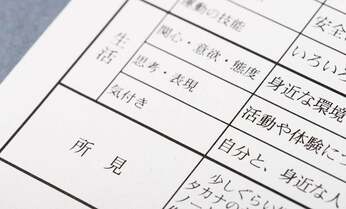 運動の技能
安全
生活
関心・意欲・態度
いろいろ
思考・表現
身近な環境
気付き
活動や体験に
所見
自分と、身近な人
少しぐらい
タカナの
ノー